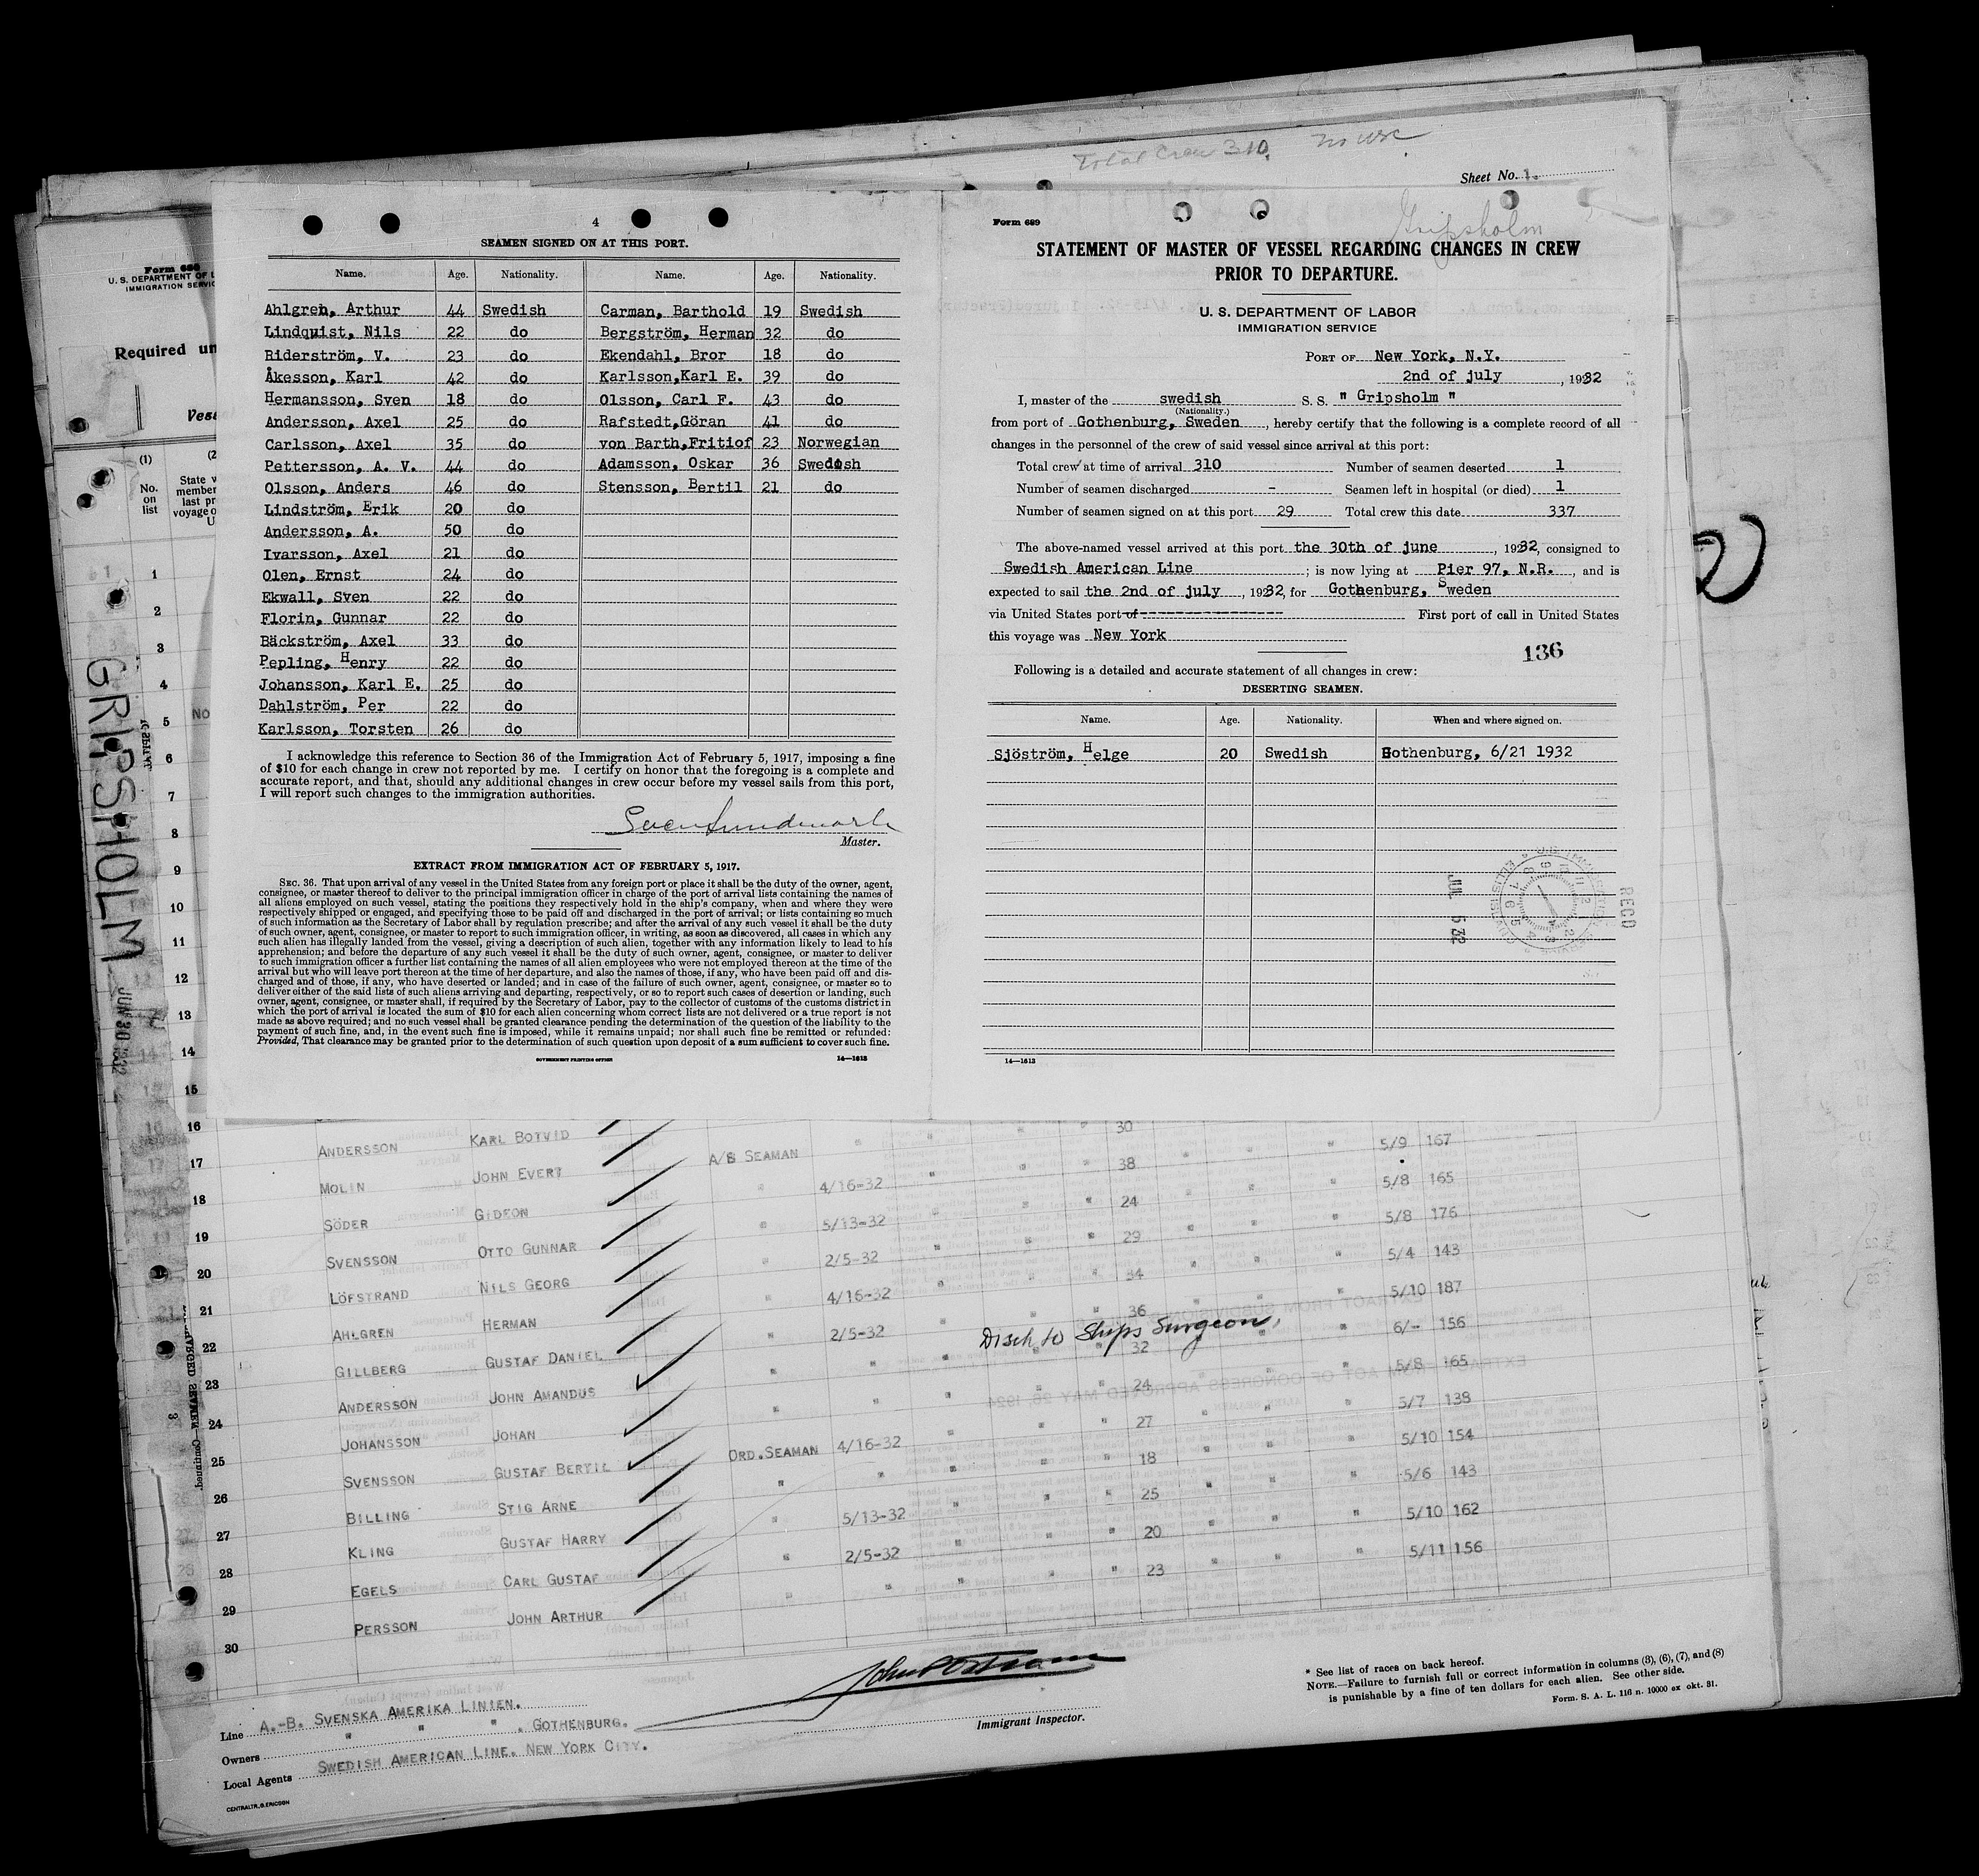 Total Crew 310.
Sheet No. 1.
4
SEAMEN SIGNED ON AT THIS PORT.
Name. Age. Nationality. Name. Age. Nationality.
Ahlgren, Arthur 44 Swedish Carman, Barthold 19 Swedish
Lindquist, Nils 22 do Bergström, Herman 32 do
Riderström, V. 23 do Ekendahl, Bror 18 do
Åkesson, Karl 42 do Karlsson,Karl E. 39 do
Hermansson, Sven 18 do Olsson, Carl F. 43 do
Andersson, Axel 25 do Rafstedt,Göran 41 do
Carlsson, Axel 35 do von Barth,Fritiof 23 Norwegian
Pettersson, A. V. 44 do Adamsson, Oskar 36 Swedish
Olsson, Anders 46 do Stensson, Bertil 21 do
Lindström, Erik 20 do
Andersson, A. 50 do
Ivarsson, Axel 21 do
Olen, Ernst 24 do
Ekwall, Sven 22 do
Florin, Gunnar 22 do
Bäckström, Axel 33 do
Pepling, Henry 22 do
Johansson, Karl E. 25 do
Dahlström, Per 22 do
Karlsson, Torsten 26 do
I acknowledge this reference to Section 36 of the Immigration Act of February 5, 1917, imposing a fine
of $10 for each change in crew not reported by me. I certify on honor that the foregoing is a complete and
accurate report, and that, should any additional changes in crew occur before my vessel sails from this port,
I will report such changes to the immigration authorities.
Master.
EXTRACT FROM IMMIGRATION ACT OF FEBRUARY 5, 1917.
SEC. 36. That upon arrival of any vessel in the United States from any foreign port or place it shall be the duty of the owner, agent,
consignee, or master thereof to deliver to the principal immigration officer in charge of the port of arrival lists containing the names of
all aliens employed on such vessel, stating the positions they respectively hold in the ship's company, when and where they were
respectively shipped or engaged, and specifying those to be paid off and discharged in the port of arrival; or lists containing so much
of such information as the Secretary of Labor shall by regulation prescribe; and after the arrival of any such vessel it shall be the duty
of such owner, agent, consignee, or master to report to such immigration officer, in writing, as soon as discovered, all cases in which any
such alien has illegally landed from the vessel, giving a description of such alien, together with any information likely to lead to his
apprehension; and before the departure of any such vessel it shall be the duty of such owner, agent, consignee, or master to deliver
to such immigration officer a further list containing the names of all alien employees who were not employed thereon at the time of the
arrival but who will leave port thereon at the time of her departure, and also the names of those, if any, who have been paid off and dis-
charged and of those, if any, who have deserted or landed; and in case of the failure of such owner, agent, consignee, or master so to
deliver either of the said lists of such aliens arriving and departing, respectively, or so to report such cases of desertion or landing, such
owner, agent, consignee, or master shall, if required by the Secretary of Labor, pay to the collector of customs of the customs district in
which the port of arrival is located the sum of $10 for each alien concerning whom correct lists are not delivered or a true report is not
made as above required; and no such vessel shall be granted clearance pending the determination of the question of the liability to the
payment of such fine, and, in the event such fine is imposed, while it remains unpaid; nor shall such fine be remitted or refunded:
Provided, That clearance may be granted prior to the determination of such question upon deposit of a sum sufficient to cover such fine.
GOVERNMENT PRINTING OFFICE 14—1613
Form 689
Gripsholm
STATEMENT OF MASTER OF VESSEL REGARDING CHANGES IN CREW
PRIOR TO DEPARTURE.
U. S. DEPARTMENT OF LABOR
IMMIGRATION SERVICE
PORT OF New York, N.Y.
2nd of july, 1932
I, master of the swedish S. S. " Gripsholm "
(Nationality.)
from port of Gothenburg, Sweden, hereby certify that the following is a complete record of all
changes in the personnel of the crew of said vessel since arrival at this port:
Total crew at time of arrival 310 Number of seamen deserted 1
Number of seamen discharged - Seamen left in hospital (or died) 1
Number of seamen signed on at this port 29 Total crew this date 337
The above-named vessel arrived at this port the 30th of june, 1932, consigned to
Swedish American Line; is now lying at Pier 97, N.R., and is
expected to sail the 2nd of july, 1932, for Gothenburg, Sweden
via United States port of First port of call in United States
this voyage was New York
136
Following is a detailed and accurate statement of all changes in crew:
DESERTING SEAMEN.
Name. Age. Nationality. When and where signed on.
Sjöström, Helge 20 Swedish Gothenburg, 6/21 1932
RECD
JUL 5 32
14—1613
Form 686
U. S. DEPARTMENT OF L
IMMIGRATION SERVIC
Required un
Vess
(1) (2
No. on list
State v
member
last pr
voyage o
U
GRIPSHOLM
JUN 30 1932
1
2
3
4
5
6
7
8
9
10
11
12
13
14
15
16
17 ANDERSSON KARL BOTVID A/B SEAMAN " " " " 30 " " " 5/9 167
18 MOLIN JOHN EVERT " 4/16-32 " " " 38 " " " 5/8 165
19 SÖDER GIDEON " 5/13-32 " " " 24 " " " 5/8 176
20 SVENSSON OTTO GUNNAR " 2/5-32 " " " 29 " " " 5/4 143
21 LÖFSTRAND NILS GEORG " 4/16-32 " " " 34 " " " 5/10 187
22 AHLGREN HERMAN " 2/5-32 " " " 36 " " " 6/- 156
Disch to Ships Surgeon,
23 GILLBERG GUSTAF DANIEL " " " " " 32 " " " 5/8 165
24 ANDERSSON JOHN AMANDUS " " " " " 24 " " " 5/7 138
25 JOHANSSON JOHAN ORD.SEAMAN 4/16-32 " " " 27 " " " 5/10 154
26 SVENSSON GUSTAF BERTIL " " " " " 18 " " " 5/6 143
27 BILLING STIG ARNE " 5/13-32 " " " 25 " " " 5/10 162
28 KLING GUSTAF HARRY " 2/5-32 " " " 20 " " " 5/11 156
29 EGELS CARL GUSTAF " " " " " 23
30 PERSSON JOHN ARTHUR
Line A.-B. SVENSKA AMERIKA LINIEN.
Owners " " " . GOTHENBURG.
Local Agents SWEDISH AMERICAN LINE. NEW YORK CITY.
CENTRALTR. G. ERICSON
Immigrant Inspector.
* See list of races on back hereof.
NOTE.—Failure to furnish full or correct information in columns (3), (6), (7), and (8)
is punishable by a fine of ten dollars for each alien. See other side.
Form. S. A. L. 116 n. 10000 ex okt. 31.